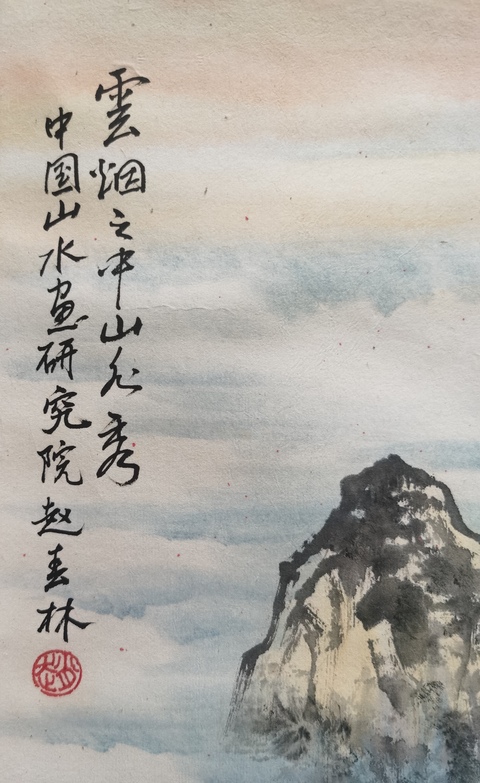 雲烟之中山秀
中国山水畫研究院赵春林